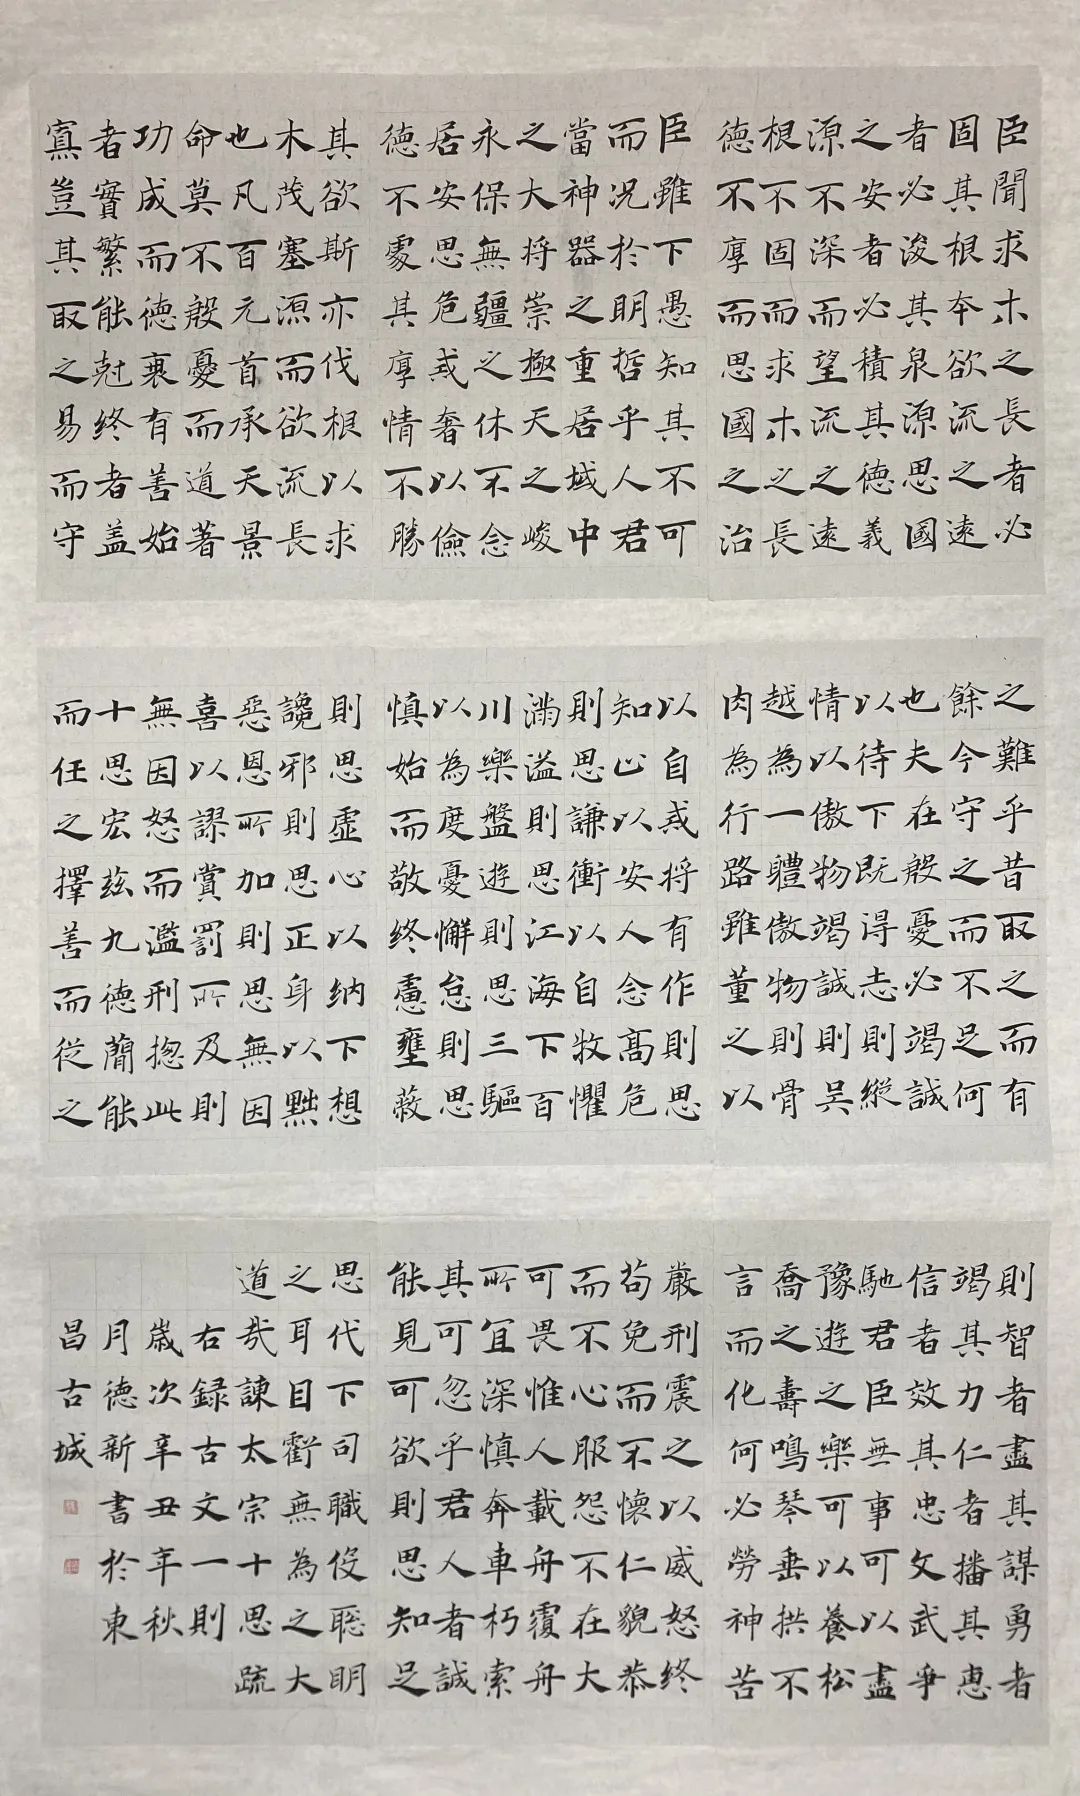 臣聞求木之長者必
固其根本欲流之遠
者必浚其泉源思國
之安者必積其德義
源不深而望流之遠
根不固而求木之長
德不厚而思國之治
臣雖下愚知其不可
而况於明哲乎人君
當神器之重居域中
之大将崇極天之峻
永保無疆之休不念
居安思危戒奢以儉
德不處其厚情不勝
其欲斯亦伐根以求
木茂塞源而欲流長
也凡百元首承天景
命莫不殷憂而道著
功成而德衰有善始
者實繁能尅終者盖
寡豈其取之易而守
之難乎昔取之而有
餘今守之而不足何
也夫在殷憂必竭誠
以待下既得志則縱
情以傲物竭誠則吴
越為一體傲物則骨
肉為行路雖董之以
以自戒将有作則思
知止以安人念高危
則思謙衝以自牧懼
滿溢則思江海下百
川樂盤遊則思三驅
以為度憂懈怠則思
慎始而敬終慮壅蔽
則思虚心以納下想
讒邪則思正身以黜
惡恩所加則思無因
喜以謬賞罰所及則
無因怒而濫刑揔此
十思宏兹九德蕑能
而任之擇善而從之
則智者盡其謀勇者
竭其力仁者播其惠
信者效其忠文武爭
馳君臣無事可以盡
豫遊之樂可以養松
喬之壽鳴琴垂拱不
言而化何必勞神苦
嚴刑震之以威怒終
苟免而不懷仁貌恭
而不心服怨不在大
可畏惟人載舟覆舟
所宜深慎奔車朽索
其可忽乎君人者誠
能見可欲則思知足
思代下司職役聡明
之耳目虧無為之大
道哉諫太宗十思疏
右録古文一則
歲次辛丑年秋
月德新書於東
昌古城